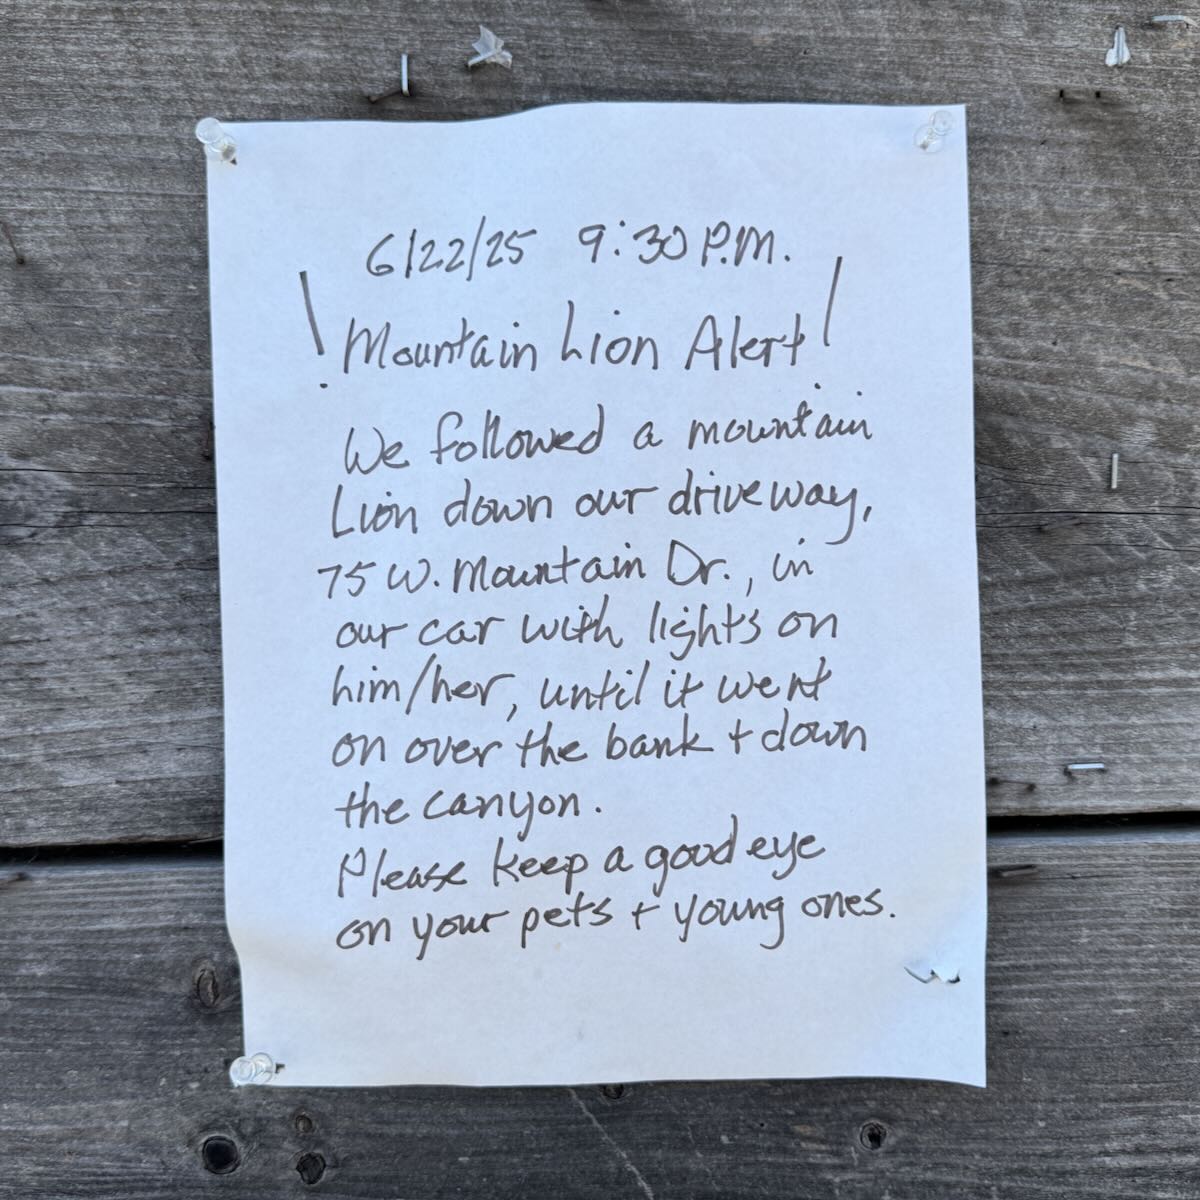 6/22/25 9:30 P.M.
! Mountain Lion Alert!
We followed a mountain
Lion down our driveway,
75 W. Mountain Dr., in
our car with lights on
him/her, until it went
on over the bank + down
the canyon.
Please keep a good eye
on your pets + young ones.